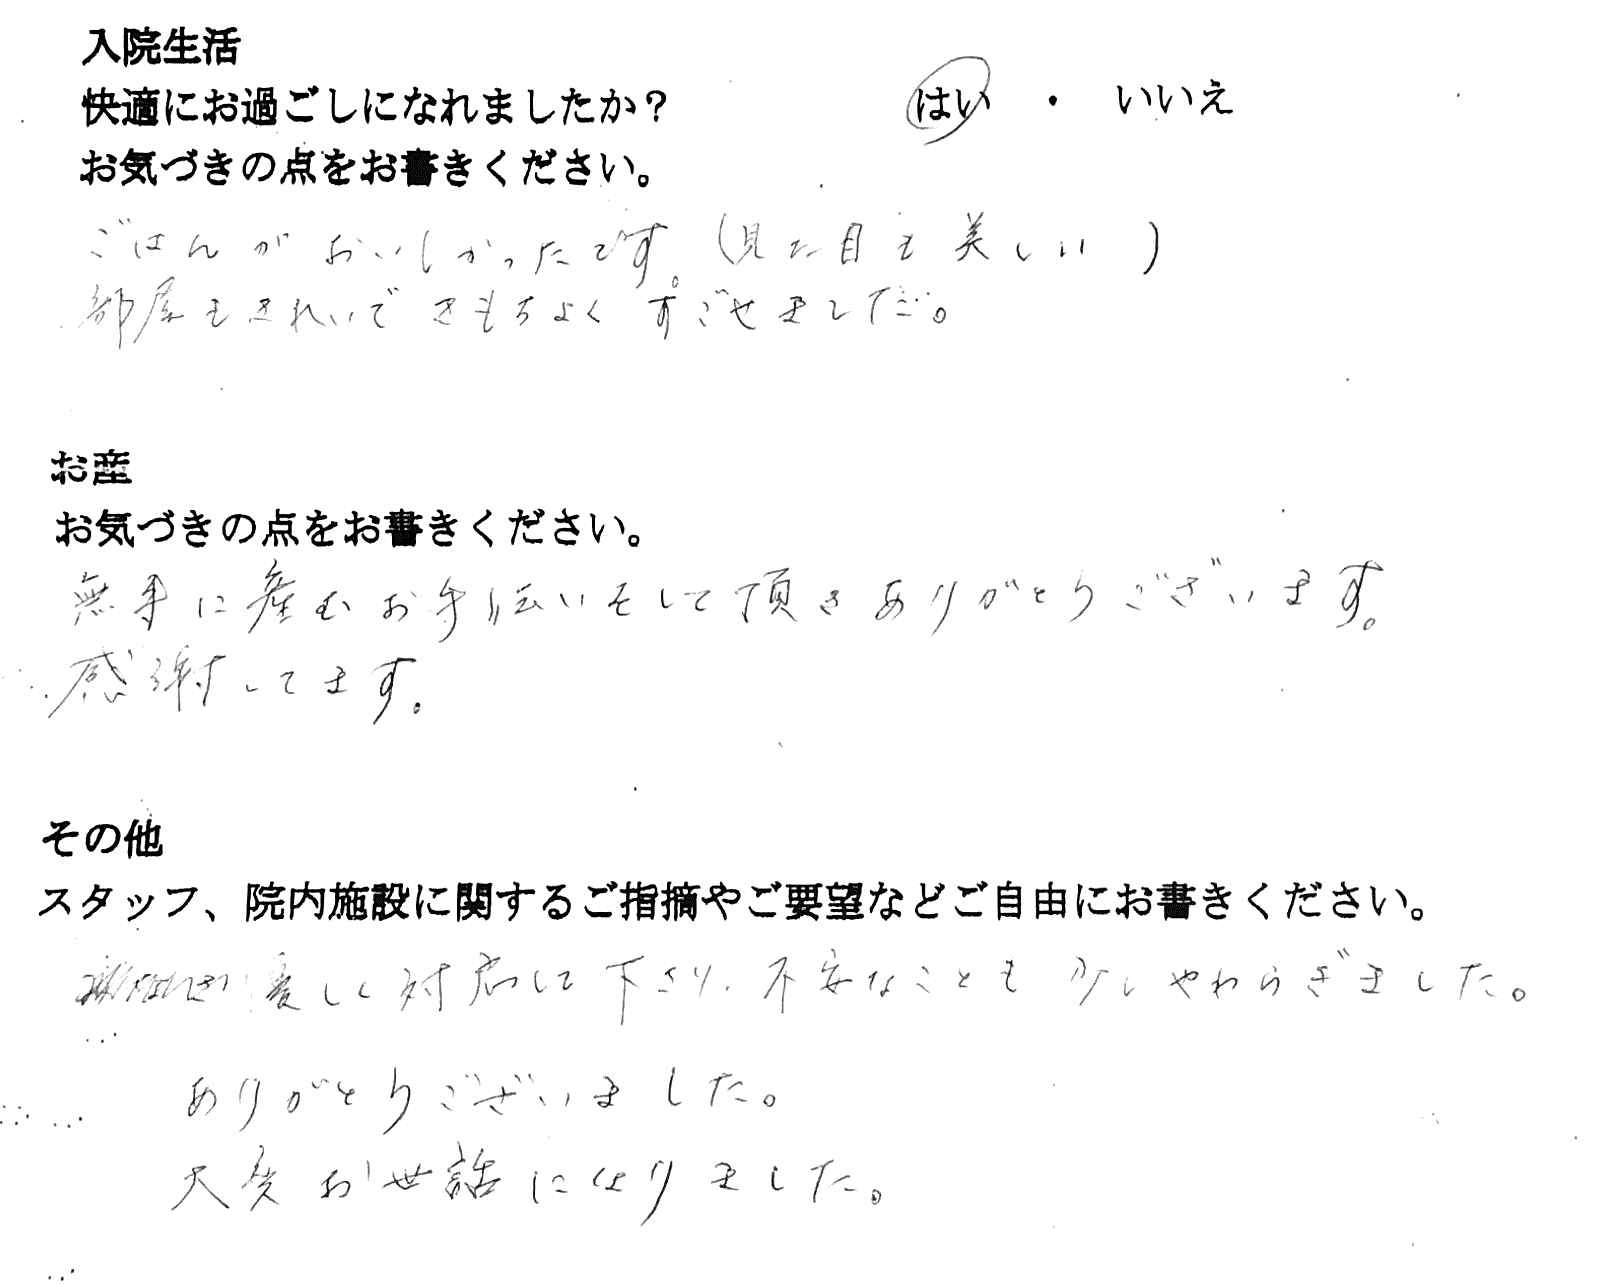 入院生活
快適にお過ごしになれましたか? はい ・ いいえ
お気づきの点をお書きください。
ごはんがおいしかったです。(見た目も美しい)
部屋もきれいできもちよくすごせました。
お産
お気づきの点をお書きください。
無事に産むお手伝いをして頂きありがとうございます。
感謝してます。
その他
スタッフ、院内施設に関するご指摘やご要望などご自由にお書きください。
優しく対応して下さり、不安なことも少しやわらぎました。
ありがとうございました。
大変お世話になりました。